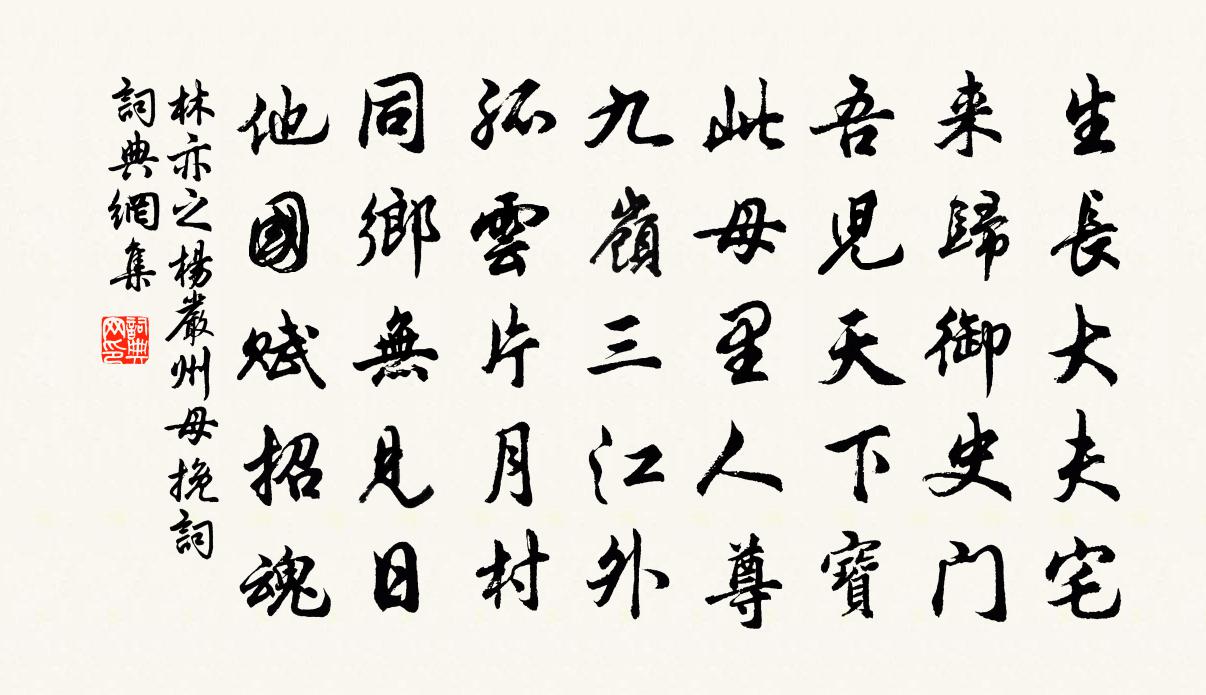 生長大夫宅
来歸御史门
吾児天下寶
此母里人尊
九嶺三江外
孤雲片月村
同鄉無見日
他國賦招魂
林亦之楊嚴州母挽詞
詞典網集
詞典网印